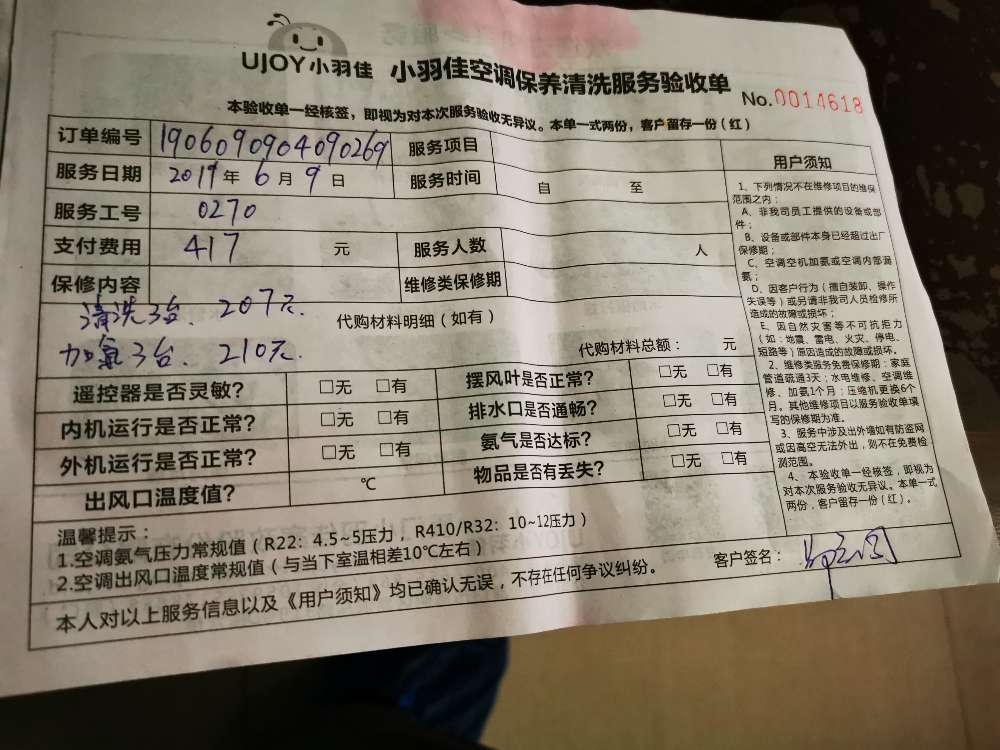 UJOY小羽佳 小羽佳空调保养清洗服务验收单
No.0014618
本验收单一经核签，即视为对本次服务验收无异议。本单一式两份，客户留存一份（红）
订单编号 1906090904090269 服务项目
服务日期 2019年6月9日 服务时间 自 至
服务工号 0270
支付费用 417 元 服务人数 人
保修内容 维修类保修期
清洗3台、207元.
代购材料明细（如有）
加氟3台、210元.
代购材料总额： 元
遥控器是否灵敏? □无 □有 摆风叶是否正常? □无 □有
内机运行是否正常? □无 □有 排水口是否通畅? □无 □有
外机运行是否正常? □无 □有 氨气是否达标? □无 □有
出风口温度值? ℃ 物品是否有丢失? □无 □有
用户须知
1、下列情况不在维修项目的维保
范围之内：
A、非我司员工提供的设备或部
件；
B、设备或部件本身已经超过出厂
保修期；
C、空调空机加氨或空调内部漏
氨；
D、因客户行为（擅自装卸、操作
失误等）或另请非我司人员检修所
造成的故障或损坏；
E、因自然灾害等不可抗拒力
（如：地震、雷电、火灾、停电、
短路等）原因造成的故障或损坏。
2、维修类服务免费保修期：家庭
管道疏通3天；水电维修、空调维
修、加氨1个月；压缩机更换6个
月。其他维修项目以服务验收单填
写的保修期为准。
3、服务中涉及出外墙如有防盗网
或因高空无法外出，则不在免费检
测范围。
4、本验收单一经核签，即视为
对本次服务验收无异议。本单一式
两份，客户留存一份（红）。
温馨提示：
1.空调氨气压力常规值（R22：4.5~5压力，R410/R32：10~12压力）
2.空调出风口温度常规值（与当下室温相差10℃左右）
本人对以上服务信息以及《用户须知》均已确认无误，不存在任何争议纠纷。
客户签名：